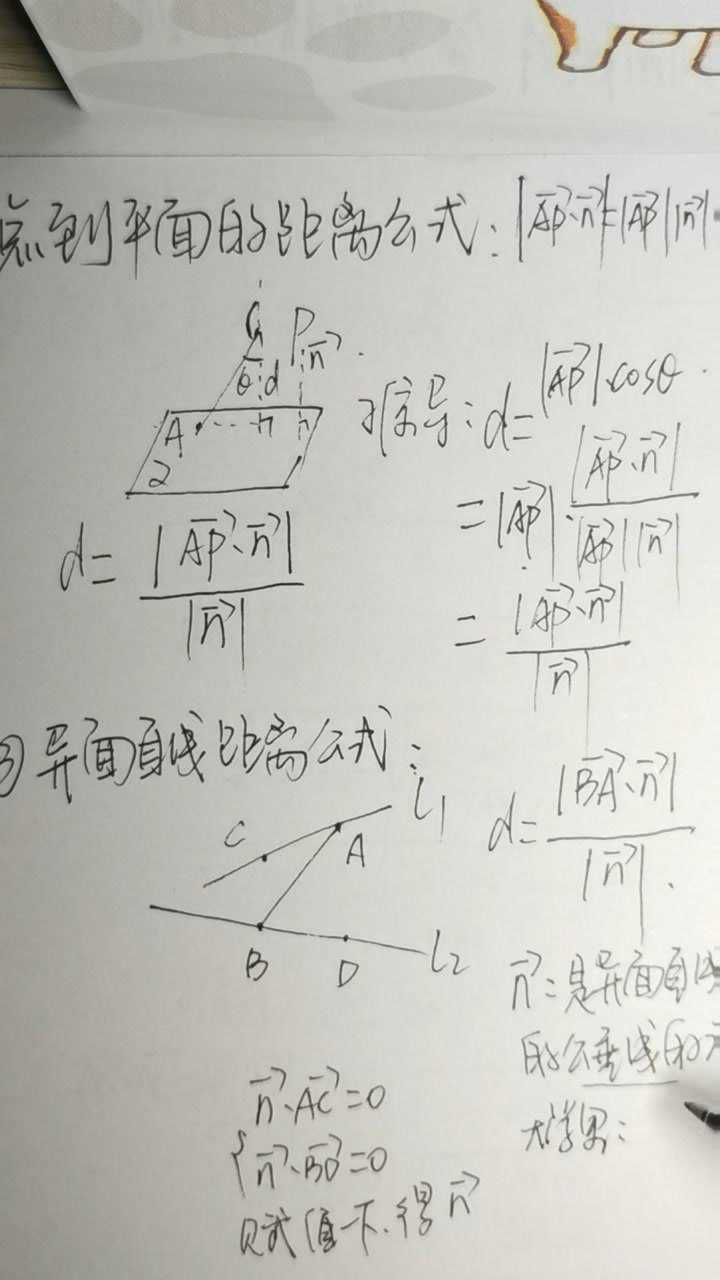 点到平面的距离公式: |AP⃗·n⃗|=|AP⃗||n⃗|
P n⃗
θ d
A
2
推导: d=|AP⃗|·cosθ
=|AP⃗|·|AP⃗·n⃗|/|AP⃗||n⃗|
=|AP⃗·n⃗|/|n⃗|
d=|AP⃗·n⃗|/|n⃗|
③异面直线距离公式:
C A l₁
B D l₂
d=|BA⃗·n⃗|/|n⃗|.
n⃗:是异面直线
的公垂线的
n⃗·AC⃗=0
{n⃗·BD⃗=0
赋值一下.得n⃗